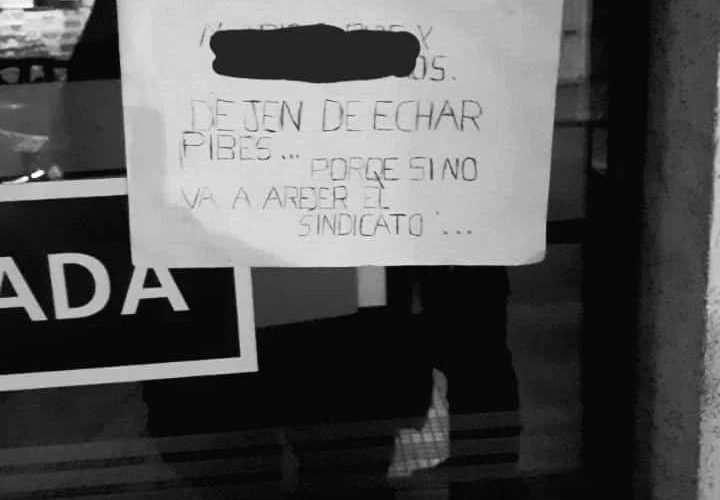 OS.
DEJEN DE ECHAR
PIBES...
PORQE SI NO
VA A ARDER EL
SINDICATO...
ADA